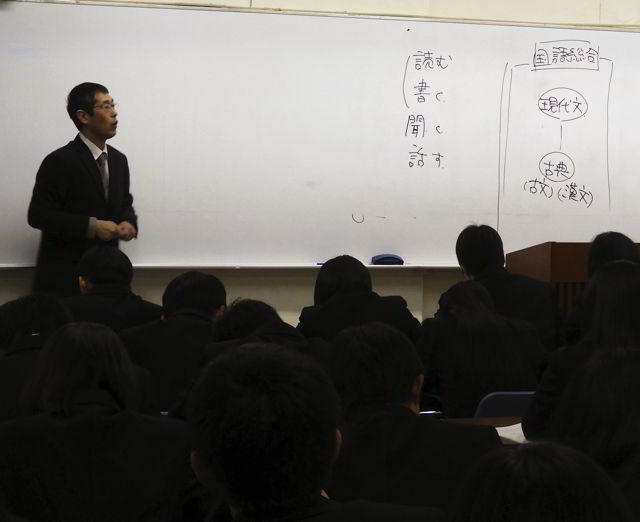 国語総合
現代文
古典
(古文)(漢文)
読む
書く
聞く
話す